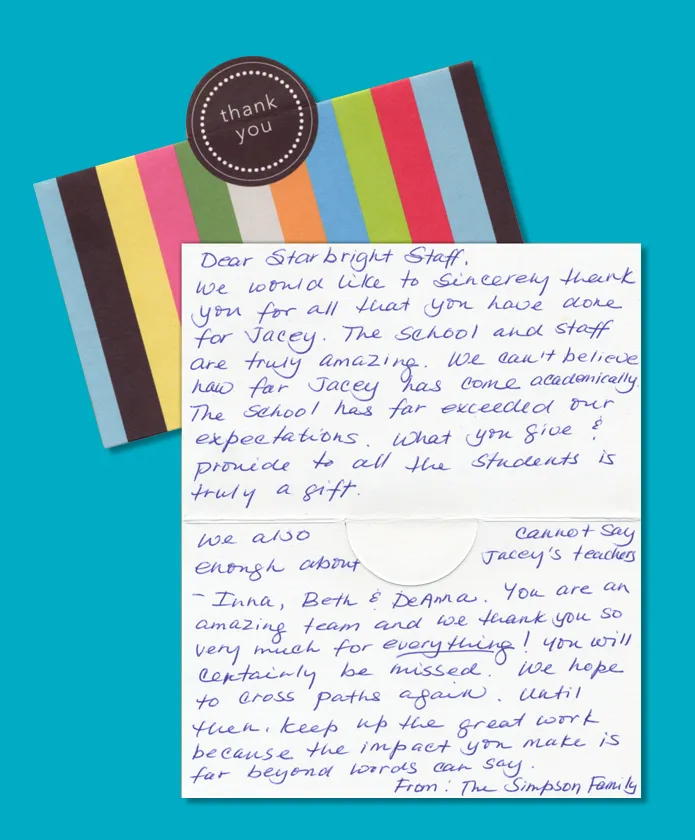 thank
you
Dear Starbright Staff,
We would like to sincerely thank
you for all that you have done
for Jacey. The School and staff
are truly amazing. We can't believe
how far Jacey has come academically.
The School has far exceeded our
expectations. What you give &
provide to all the students is
truly a gift.
We also cannot say
enough about Jacey's teachers
- Inna, Beth & DeAnna. You are an
amazing team and we thank you so
very much for everything! You will
certainly be missed. We hope
to cross paths again. Until
then, keep up the great work
because the impact you make is
far beyond words can say.
From: The Simpson Family